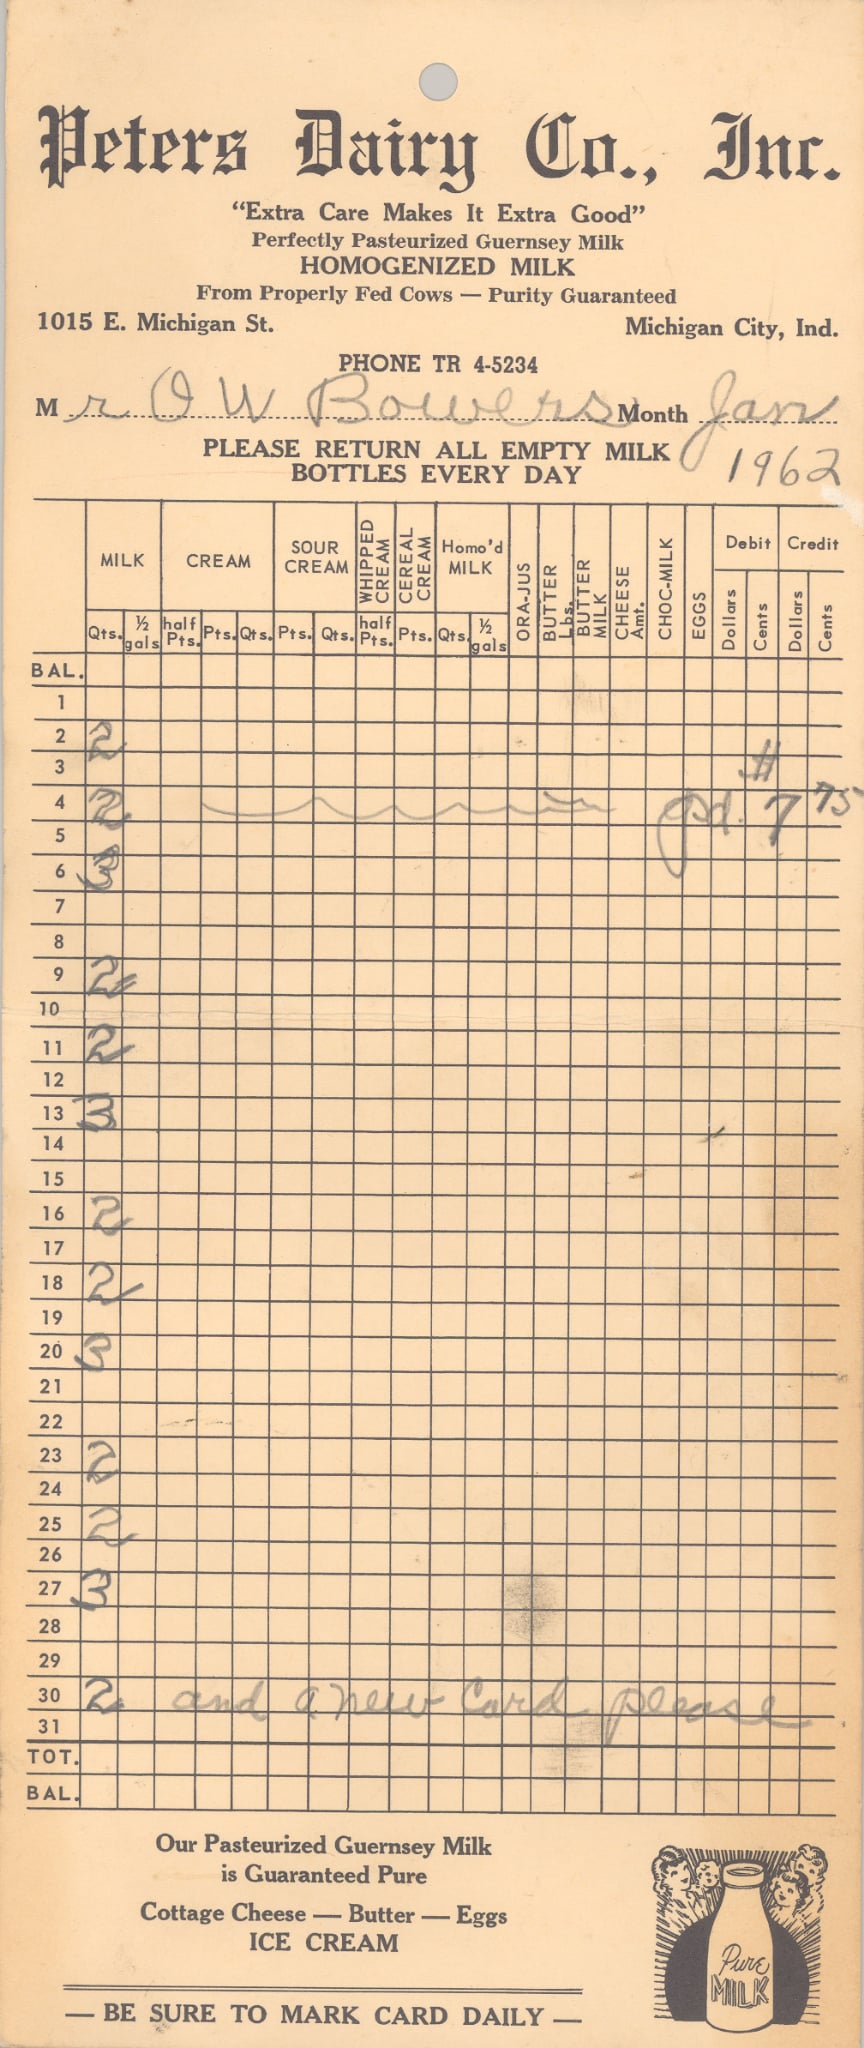 Peters Dairy Co., Inc.
"Extra Care Makes It Extra Good"
Perfectly Pasteurized Guernsey Milk
HOMOGENIZED MILK
From Properly Fed Cows — Purity Guaranteed
1015 E. Michigan St. Michigan City, Ind.
PHONE TR 4-5234
Mr O W Bowers Month Jan
PLEASE RETURN ALL EMPTY MILK
BOTTLES EVERY DAY
1962
MILK CREAM SOUR CREAM WHIPPED CREAM CEREAL CREAM Homo'd MILK ORA-JUS BUTTER Lbs. BUTTER MILK CHEESE Amt. CHOC-MILK EGGS Debit Credit
Qts. ½ gals half Pts. Pts. Qts. Pts. Qts. half Pts. Pts. Qts. ½ gals Dollars Cents Dollars Cents
BAL.
1
2 2
3 $
4 2 pd. 7 75
5
6 3
7
8
9 2
10
11 2
12
13 3
14
15
16 2
17
18 2
19
20 3
21
22
23 2
24
25 2
26
27 3
28
29
30 2 and a new card please
31
TOT.
BAL.
Our Pasteurized Guernsey Milk
is Guaranteed Pure
Cottage Cheese — Butter — Eggs
ICE CREAM
— BE SURE TO MARK CARD DAILY —
Pure
MILK